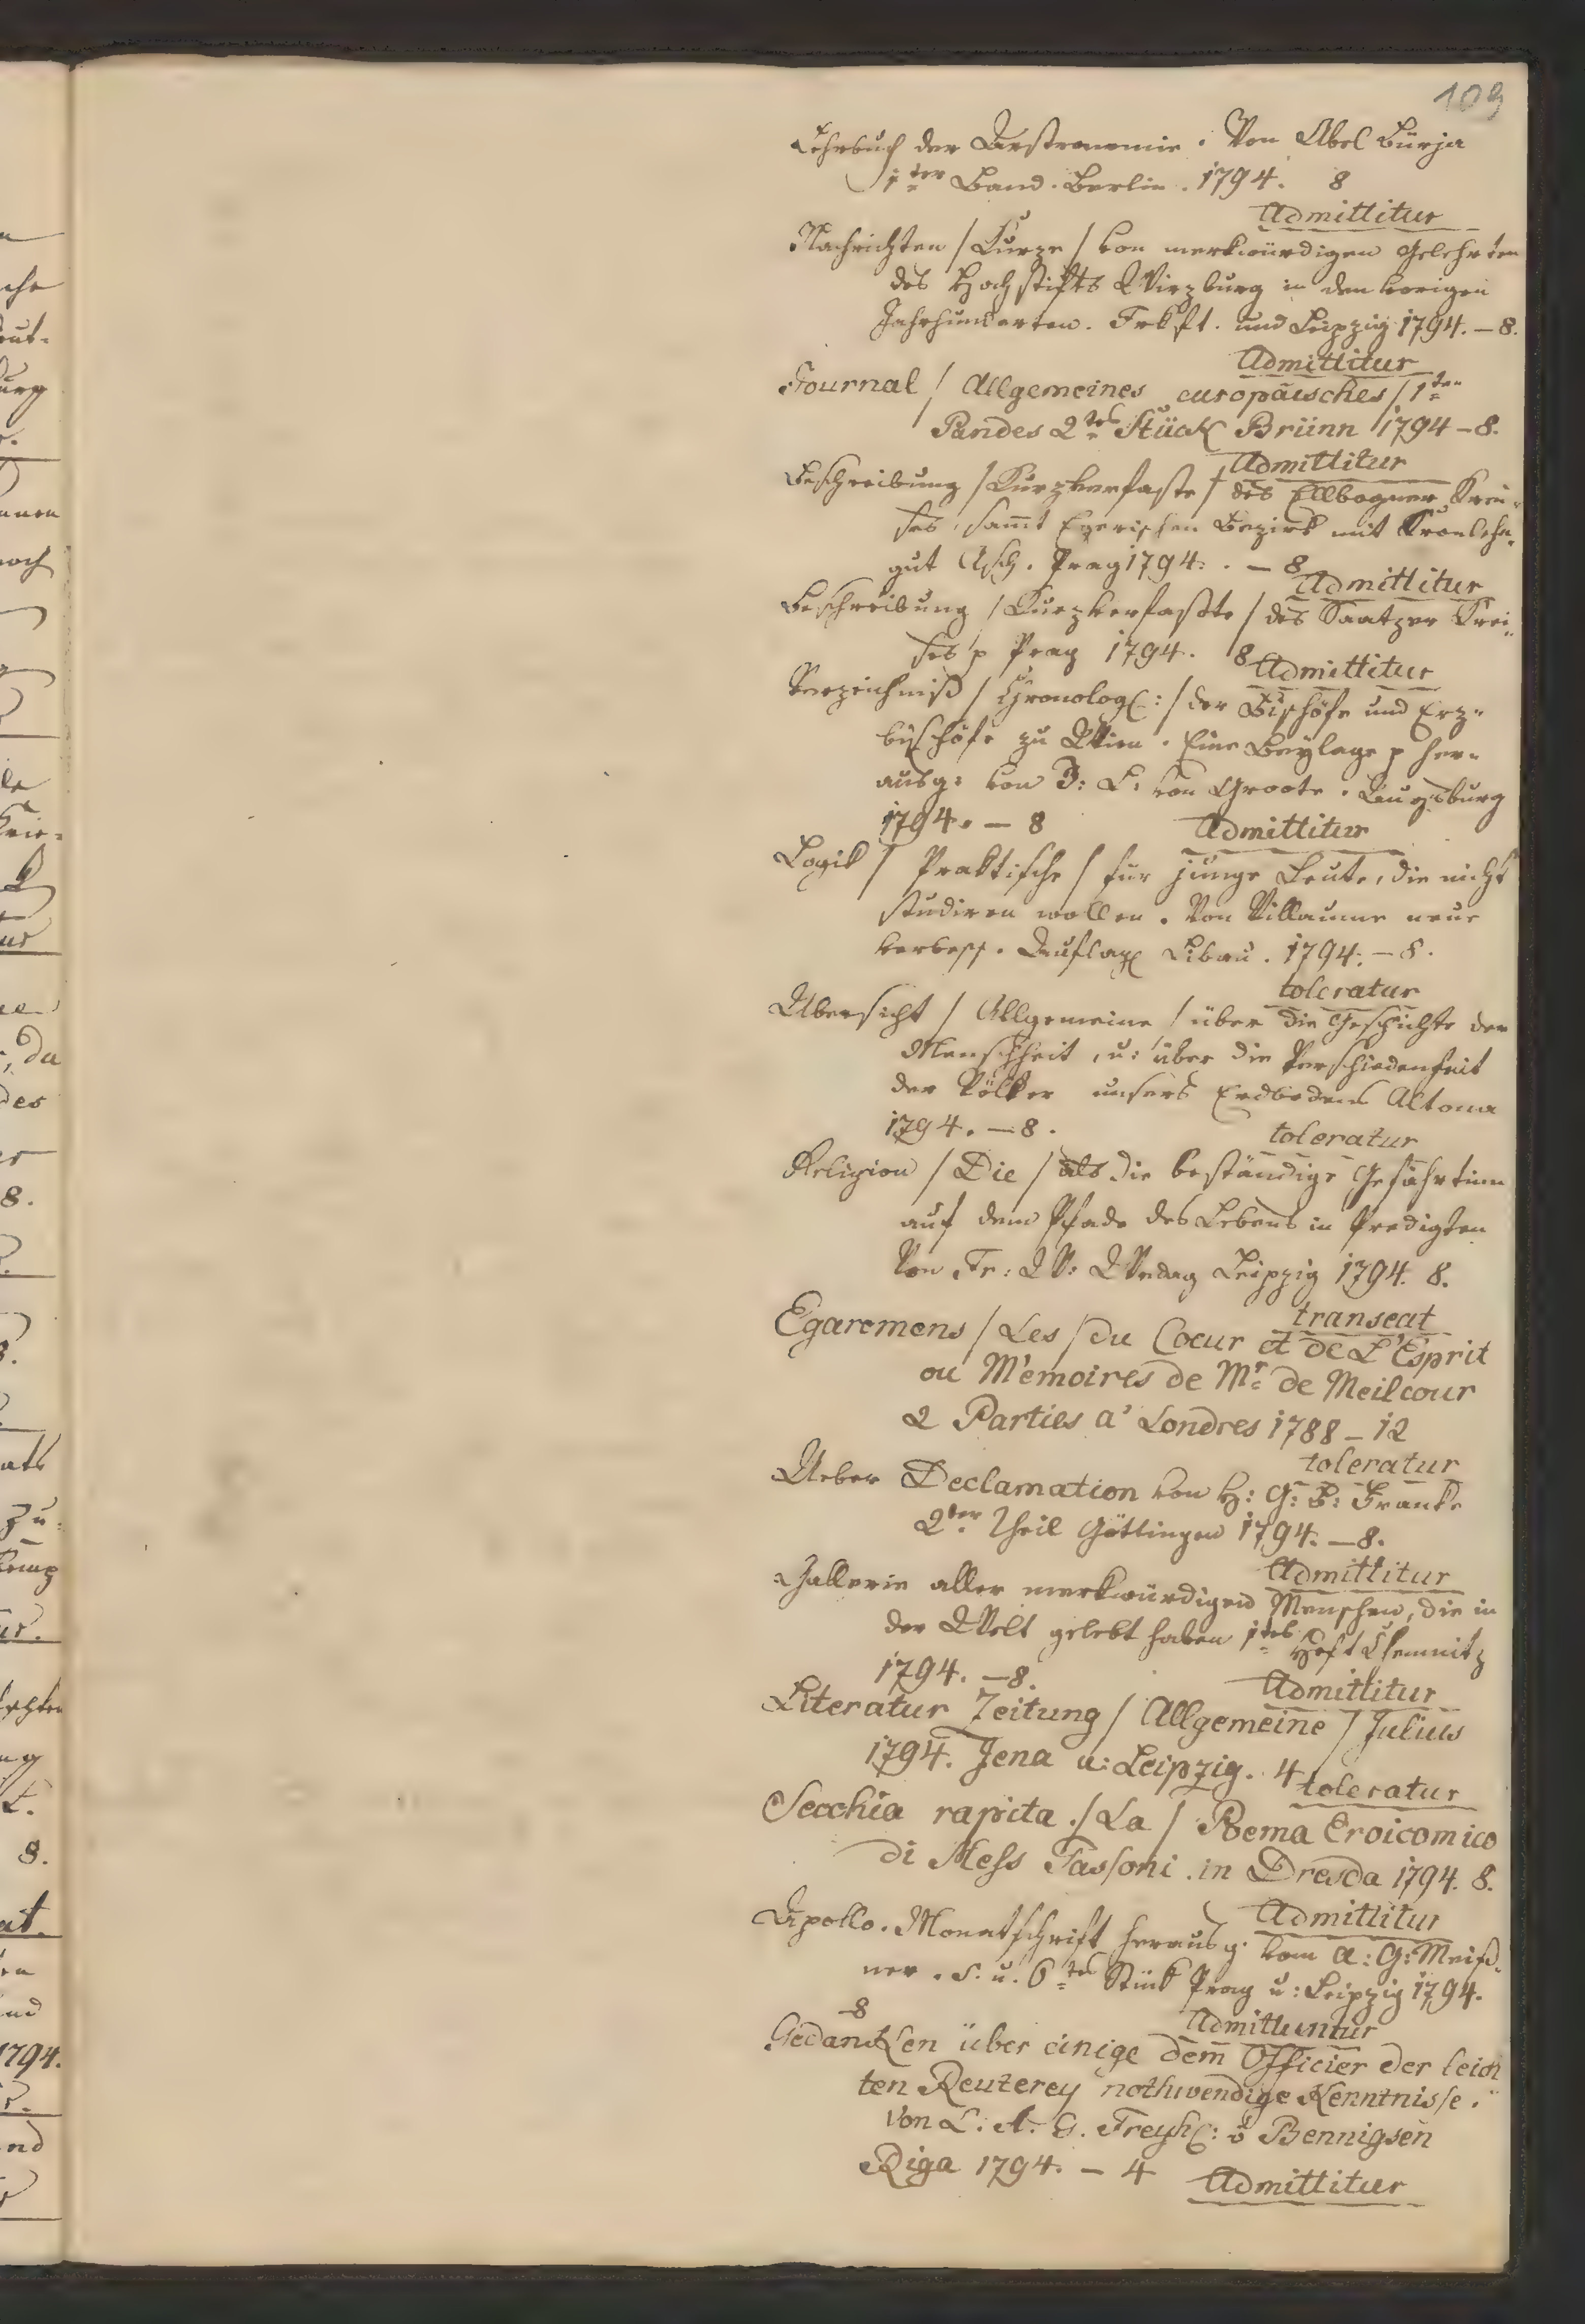 109
Lehrbuch der Arstronomie. Von Abel Bürja
1ter Band. Berlin. 1794. 8
Admittitur
Nachrichten / Kurze / von merkwürdigen Gelehrten
des Hochstifts Wirzburg in den vorigen
Jahrhunderten. Frkft. und Leipzig 1794. – 8.
Admittitur
Journal / Allgemeines europäisches / 1ten
Bandes 2tes Stück Brünn 1794 – 8.
Admittitur
Beschreibung / Kurzverfaste / des Ellbogner Krei-
ses, sammt Egerischen Bezirk mit Kronlehn-
gut Asch. Prag 1794. – 8
Admittitur
Beschreibung / Kurzverfaßte / des Saatzer Krei-
ses p Prag 1794. 8
Admittitur
Verzeichniß / Chronolog: / der Bischöfe und Erz-
bischöfe zu Wien. Eine Beylage p her-
ausg: von J: L. von Groote. Augsburg
1794. – 8
Admittitur
Logik / Praktische / für junge Leute, die nicht
studiren wollen. Von Villaume neue
verbess. Auflag Libau. 1794. – 8.
toleratur
Übersicht / Allgemeine / über die Geschichte der
Menschheit, u: über die Verschiedenheit
der Völker unsers Erdbodens Altona
1794. – 8.
toleratur
Religion / Die / als die beständige Gefährtinn
auf dem Pfade des Lebens in Predigten
Von Fr: W: Wedag Leipzig 1794. 8.
transeat
Egaremens / Les / du Coeur et de L'Esprit
ou Mémoires de Mr. de Meilcour
2 Parties a' Londres 1788 – 12
toleratur
Ueber Declamation von H: G: B: Franke
2ter Theil Göttingen 1794. – 8.
Admittitur
Gallerie aller merkwürdigen Menschen, die in
der Welt gelebt haben 1tes Heft Chemnitz
1794. – 8.
Admittitur
Literatur Zeitung / Allgemeine / Julius
1794. Jena u: Leipzig. 4
toleratur
Secchia rapita / La / Poema Eroicomico
di Aless Tassoni. in Dresda 1794. 8.
Admittitur
Apollo. Monatschrift herausg. vom A: G: Meiß-
ner. 5. u. 6tes Stück Prag u: Leipzig 1794.
– 8
Admittuntur
Gedancken über einige dem Officier der leich
ten Reuterey nothwendige Kenntnisse.
Von L. A. G. Freyh: v Bennigsen
Riga 1794. – 4
Admittitur